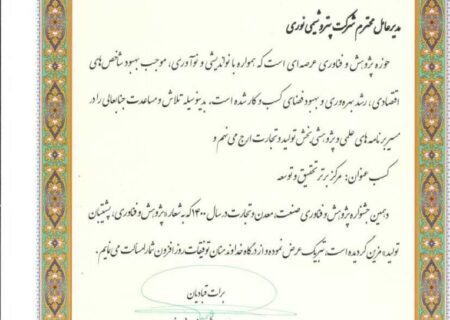 مدیرعامل محترم شرکت پتروشیمی نوری
حوزه پژوهش و فناوری عرصه‌ای است که همواره با نواندیشی و نوآوری، موجب بهبود شاخص‌های
اقتصادی، رشد بهره‌وری و بهبود فضای کسب و کار شده است. بدینوسیله تلاش و مساعدت جنابعالی را در
مسیر برنامه‌های علمی و پژوهشی بخش تولید و تجارت ارج می‌نهم و
کسب عنوان: مرکز برتر تحقیق و توسعه
دهمین جشنواره پژوهش و فناوری صنعت، معدن و تجارت در سال ۱۴۰۰ که به شعار «پژوهش و فناوری، پشتیبان
تولید» مزین گردیده است، تبریک عرض نموده و از درگاه خداوند منان توفیقات روزافزون شما را مسالت می‌نمایم.
برات قبادیان